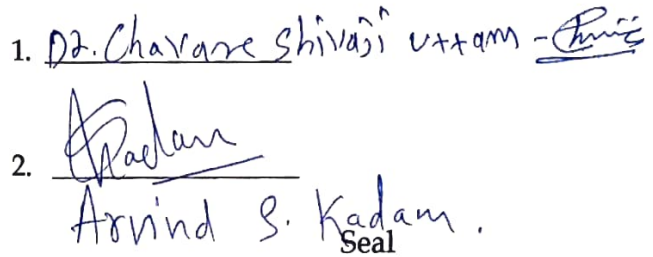 1. Dr. Chavare Shivaji Uttam -
2. AKadam
Arvind S. Kadam.
Seal